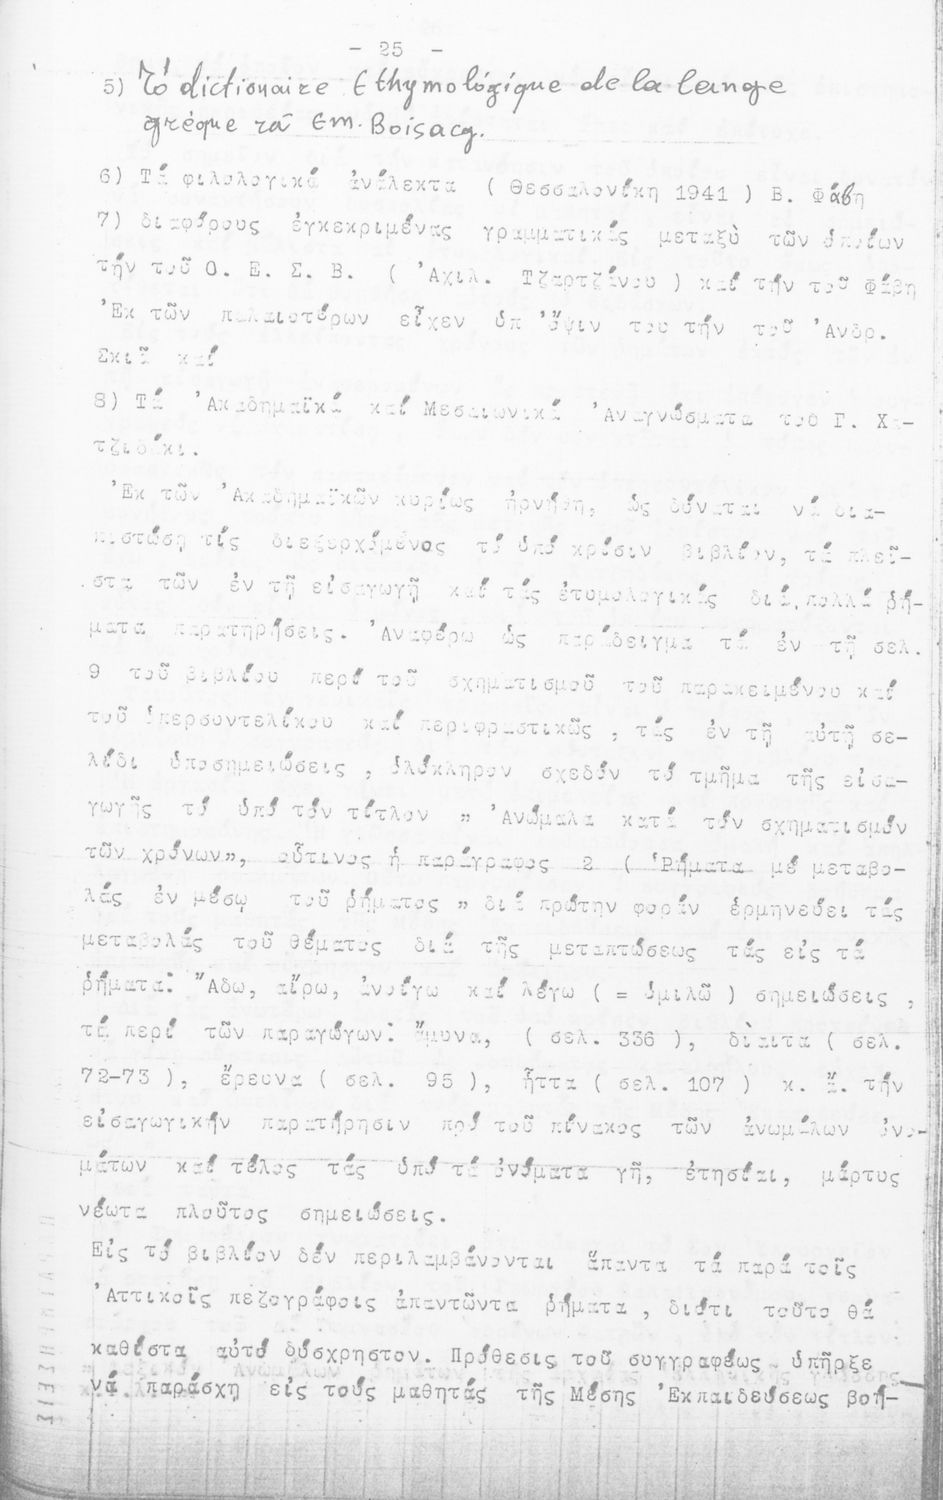 - 25 -
5) Τό dictionaire Ethymológique de la lange
grèque τοῦ Em. Boisacq.
6) Τά φιλολογικά ἀνάλεκτα ( Θεσσαλονίκη 1941 ) Β. Φάβη
7) διαφόρους ἐγκεκριμένας γραμματικάς μεταξὺ τῶν ὁποίων
τήν τοῦ Ο. Ε. Σ. Β. ( Ἀχιλ. Τζαρτζάνου ) καί τήν τοῦ Φάβη
Ἐκ τῶν παλαιοτέρων εἶχεν ὑπ ὄψιν του τήν τοῦ Ἀνδρ.
Σκιᾶ καί
8) Τά Ἀκαδημαϊκά καί Μεσαιωνικά Ἀναγνώσματα του Γ. Χα-
τζιδάκι.
Ἐκ τῶν Ἀκαδημαϊκῶν κυρίως ἠρνήθη, ὡς δύναται νά δια-
πιστώση τίς διεξερχόμενος τό ὑπό κρίσιν βιβλίον, τά πλεῖ-
στα τῶν ἐν τῇ εἰσαγωγῇ καί τάς ἐτυμολογικάς διά πολλά ῥή-
ματα παρατηρήσεις. Ἀναφέρω ὡς παράδειγμα τά ἐν τῇ σελ.
9 τοῦ βιβλίου περί τοῦ σχηματισμοῦ τοῦ παρακειμένου καί
τοῦ ὑπερσυντελίκου καί περιφραστικῶς , τάς ἐν τῇ αὐτῇ σε-
λίδι ὑποσημειώσεις , ὁλόκληρον σχεδόν τό τμῆμα τῆς εἰσα-
γωγῆς τό ὑπό τόν τίτλον „ Ἀνώμαλα κατά τόν σχηματισμόν
τῶν χρόνων", οὗτινος ἡ παράγραφος 2 ( Ῥήματα μέ μεταβο-
λάς ἐν μέσῳ τοῦ ῥήματος „ διά πρώτην φοράν ἑρμηνεύει τάς
μεταβολάς τοῦ θέματος διά τῆς μεταπτώσεως τάς εἰς τά
ῥήματα: Ἄδω, αἴρω, ἀνοίγω καί λέγω ( = ὁμιλῶ ) σημειώσεις ,
τά περί τῶν παραγώγων: ἄμυνα, ( σελ. 336 ), δίαιτα ( σελ.
72-73 ), ἔρευνα ( σελ. 95 ), ἧττα ( σελ. 107 ) κ. ἄ. τήν
εἰσαγωγικήν παρατήρησιν πρό τοῦ πίνακος τῶν ἀνωμάλων ὀνο-
μάτων καί τέλος τάς ὑπό τά ὀνόματα γῆ, ἐτησίαι, μάρτυς
νέωτα πλοῦτος σημειώσεις.
Εἰς τό βιβλίον δέν περιλαμβάνονται ἅπαντα τά παρά τοῖς
Ἀττικοῖς πεζογράφοις ἀπαντῶντα ῥήματα , διότι τοῦτο θά
καθίστα αὐτό δύσχρηστον. Πρόθεσις τοῦ συγγραφέως ὑπῆρξε
νά παράσχη εἰς τούς μαθητάς τῆς Μέσης Ἐκπαιδεύσεως βοή-